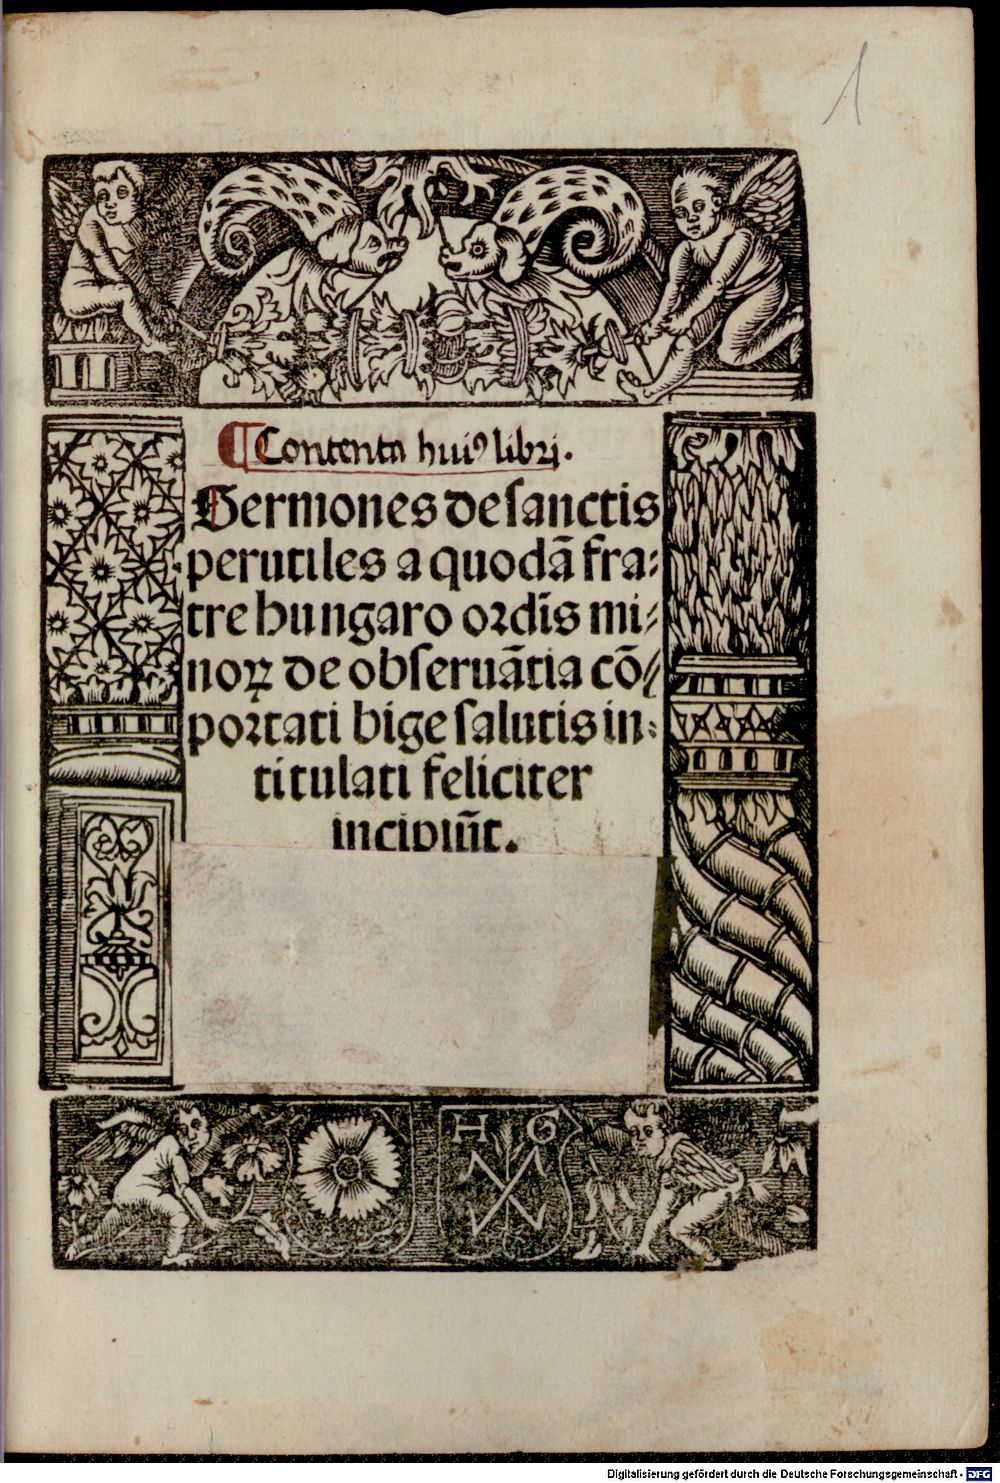 1
¶Contenta hui⁹ libri.
Sermones de ſanctis
perutiles a quodã fra⸗
tre hungaro oꝛdĩs mi⸗
noꝝ de obſeruãtia cõ⸗
poꝛtati bige ſalutis in⸗
titulati feliciter
incipiũt.
H G
Digitalisierung gefördert durch die Deutsche Forschungsgemeinschaft - DFG